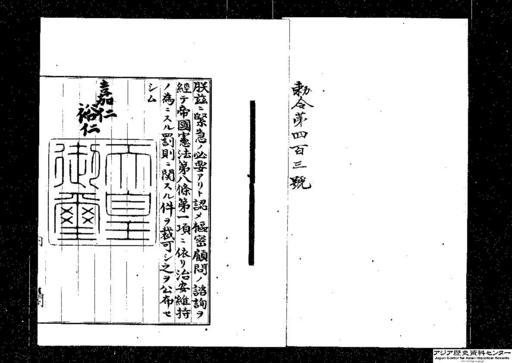 勅令第四百三號
朕玆ニ緊急ノ必要アリト認メ樞密顧問ノ諮詢ヲ
經テ帝國憲法第八條第一項ニ依リ治安維持
ノ為ニスル罰則ニ関スル件ヲ裁可シ之ヲ公布セ
シム
嘉仁
裕仁
天皇
御璽
アジア歴史資料センター
Japan Center for Asian Historical Records